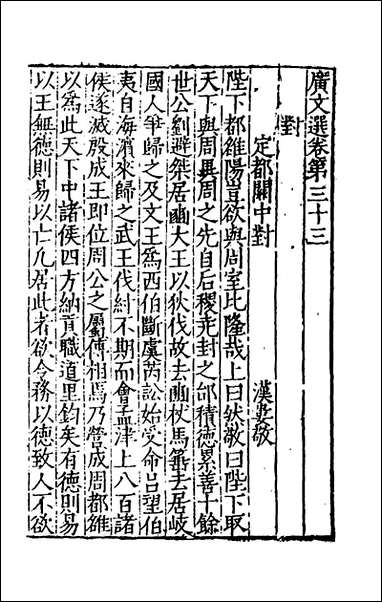 廣文選卷第三十三
對
定都關中對
漢婁敬
陛下都雒陽豈欲與周室比隆哉上曰然敬曰陛下取
天下與周異周之先自后稷堯封之邰積德累善十餘
世公劉避桀居豳大王以狄伐故去豳杖馬箠去居岐
國人爭歸之及文王爲西伯斷虞芮訟始受命吕望伯
夷自海濱來歸之武王伐紂不期而會孟津上八百諸
侯遂滅殷成王即位周公之屬傅相焉乃營成周都雒
以爲此天下中諸侯四方納貢職道里鈞矣有德則易
以王無德則易以亡凡居此者欲令務以德致人不欲